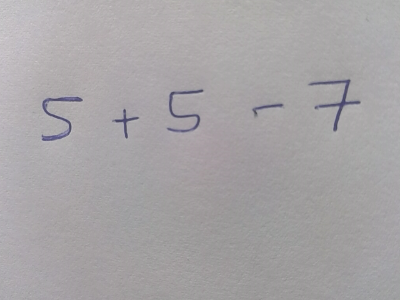 5 + 5 - 7